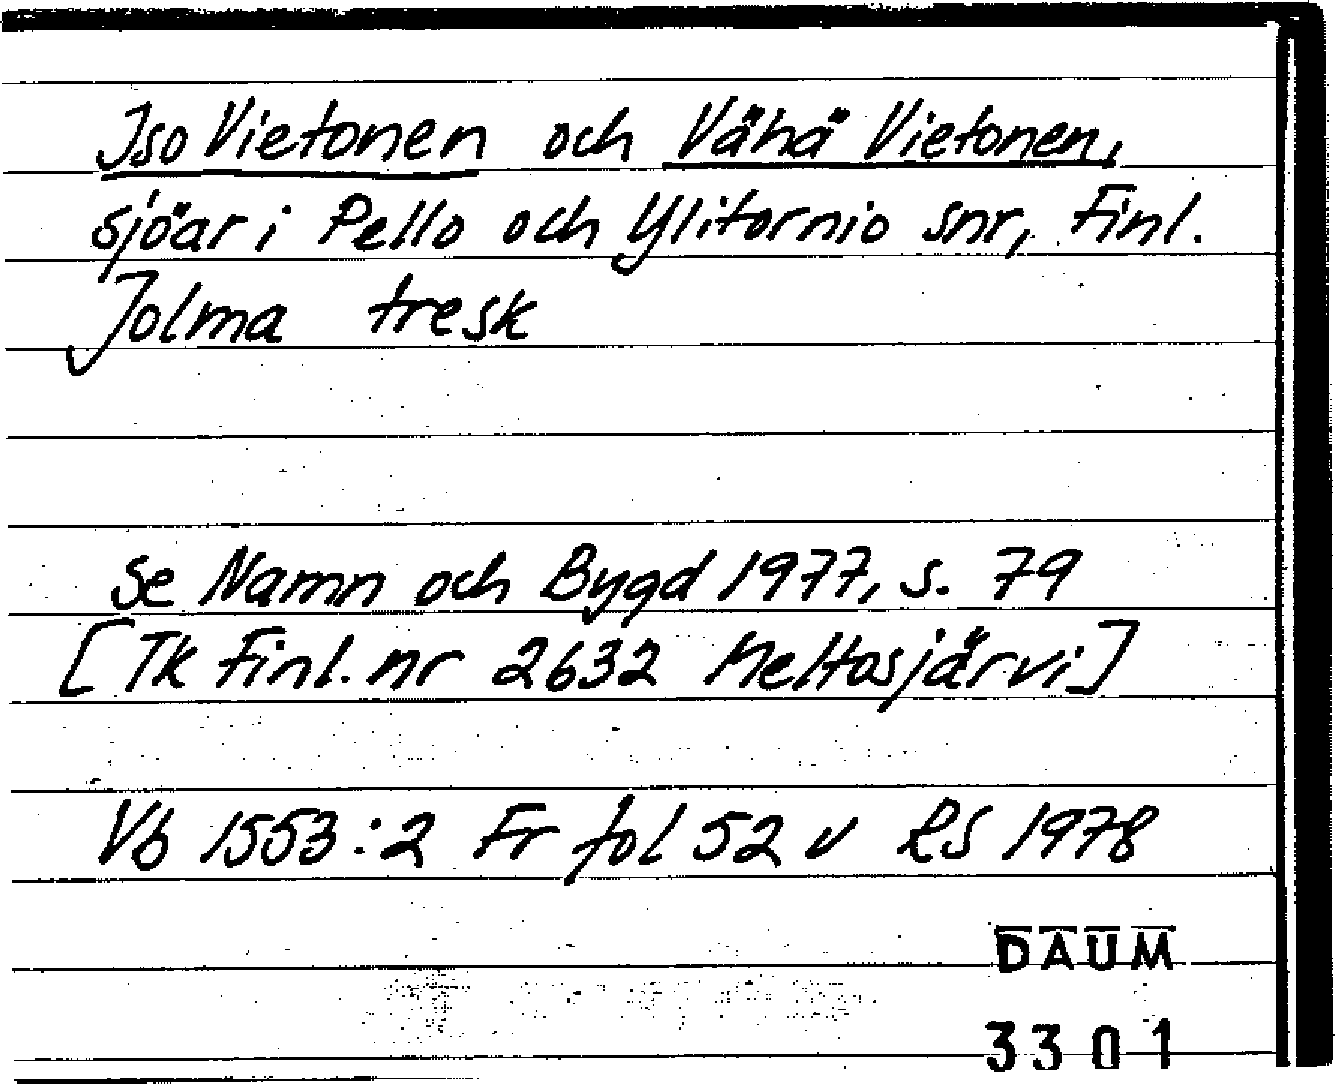 Iso Vietonen och Vähä Vietonen,
sjöar i Pello och Ylitornio snr, Finl.
Jolma tresk
Se Namn och Bygd 1977, s. 79
[Tk Finl. nr 2632 Meltosjärvi]
Vb 1553:2 Fr fol 52 v RS 1978
DAUM
3301